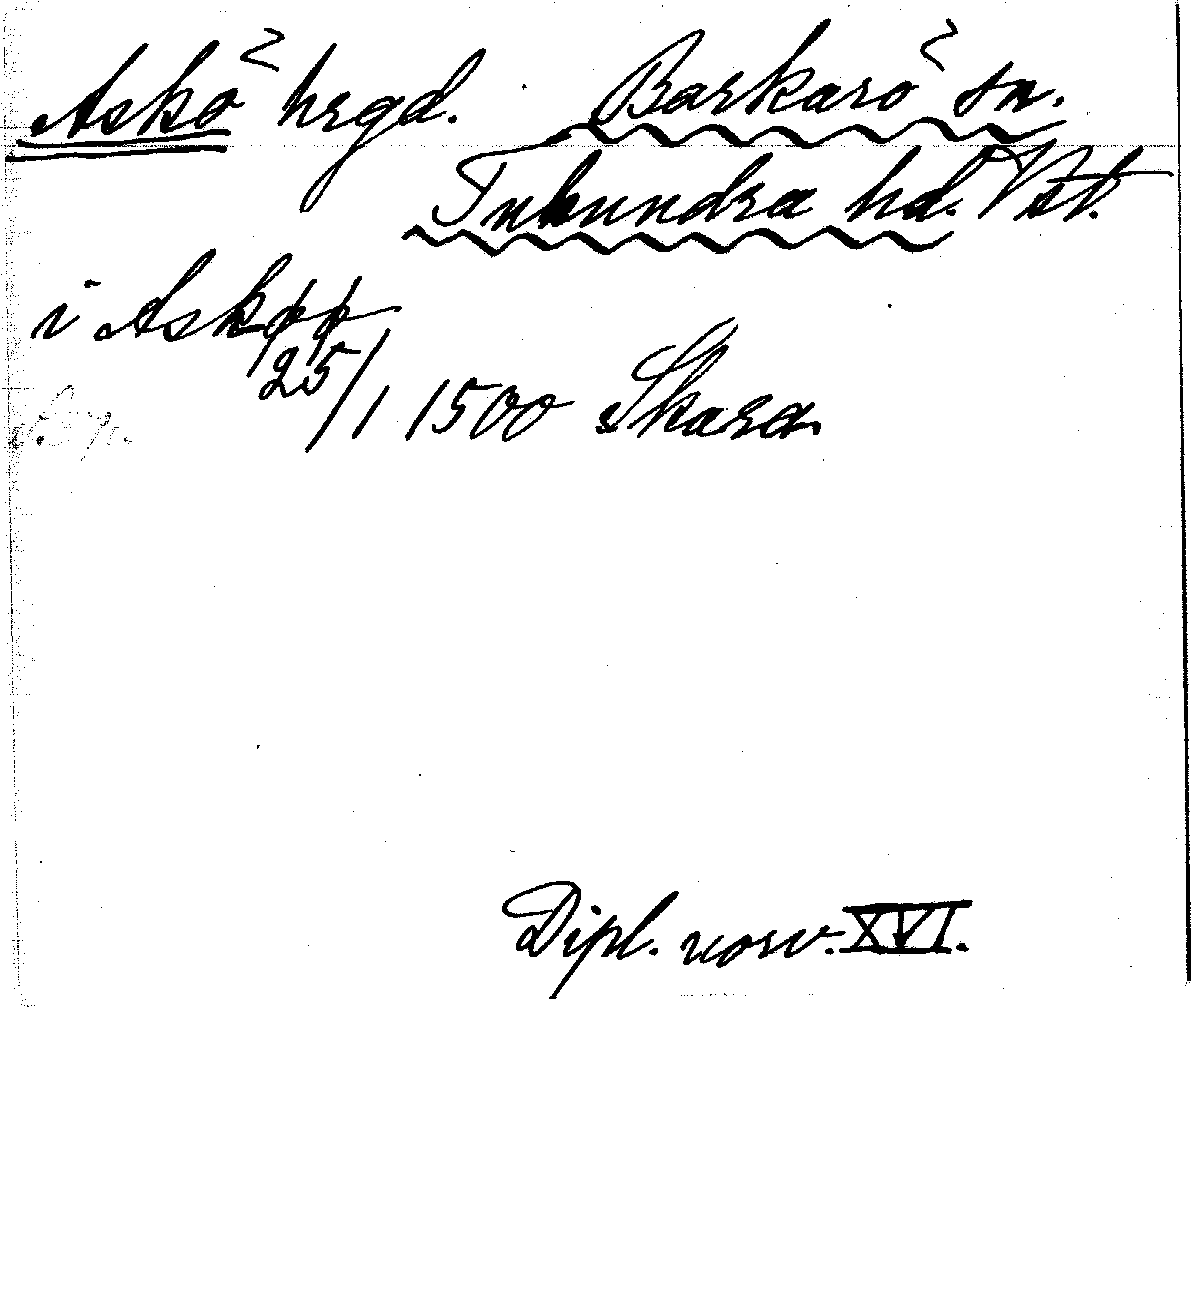 Askö hrgd. Barkarö sn.
Tuhundra hd. Vst.
i Askøø
25/1 1500 Skara
Dipl. norv. XVI.